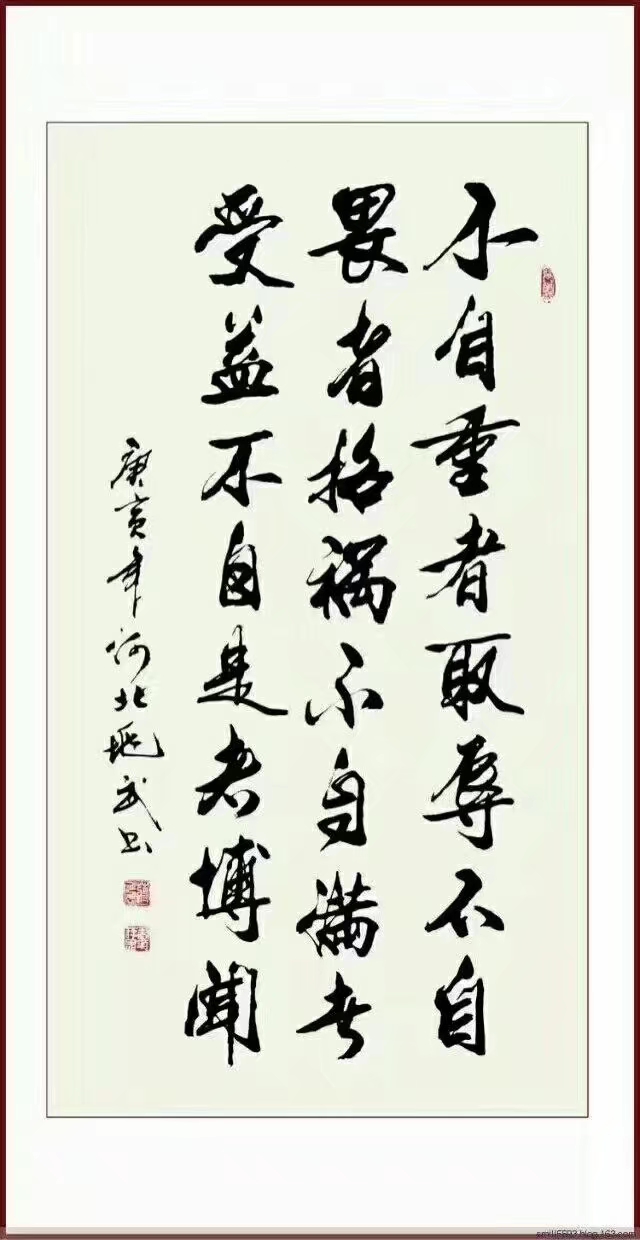 不自重者取辱不自
畏者招祸不自满者
受益不自是者博闻
庚寅年河北武书